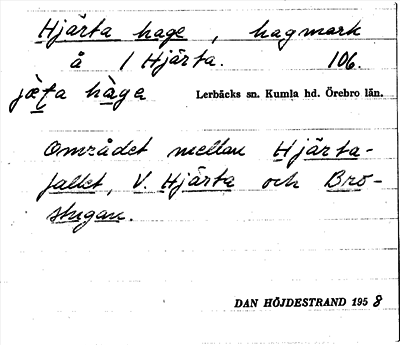 Hjärta hage, hagmark
å 1 Hjärta. 106.
hàga Lerbäcks sn. Kumla hd. Örebro län.
Området mellan Hjärta-
fallet, V. Hjärta och Bro-
stugan.
DAN HÖJDESTRAND 1958